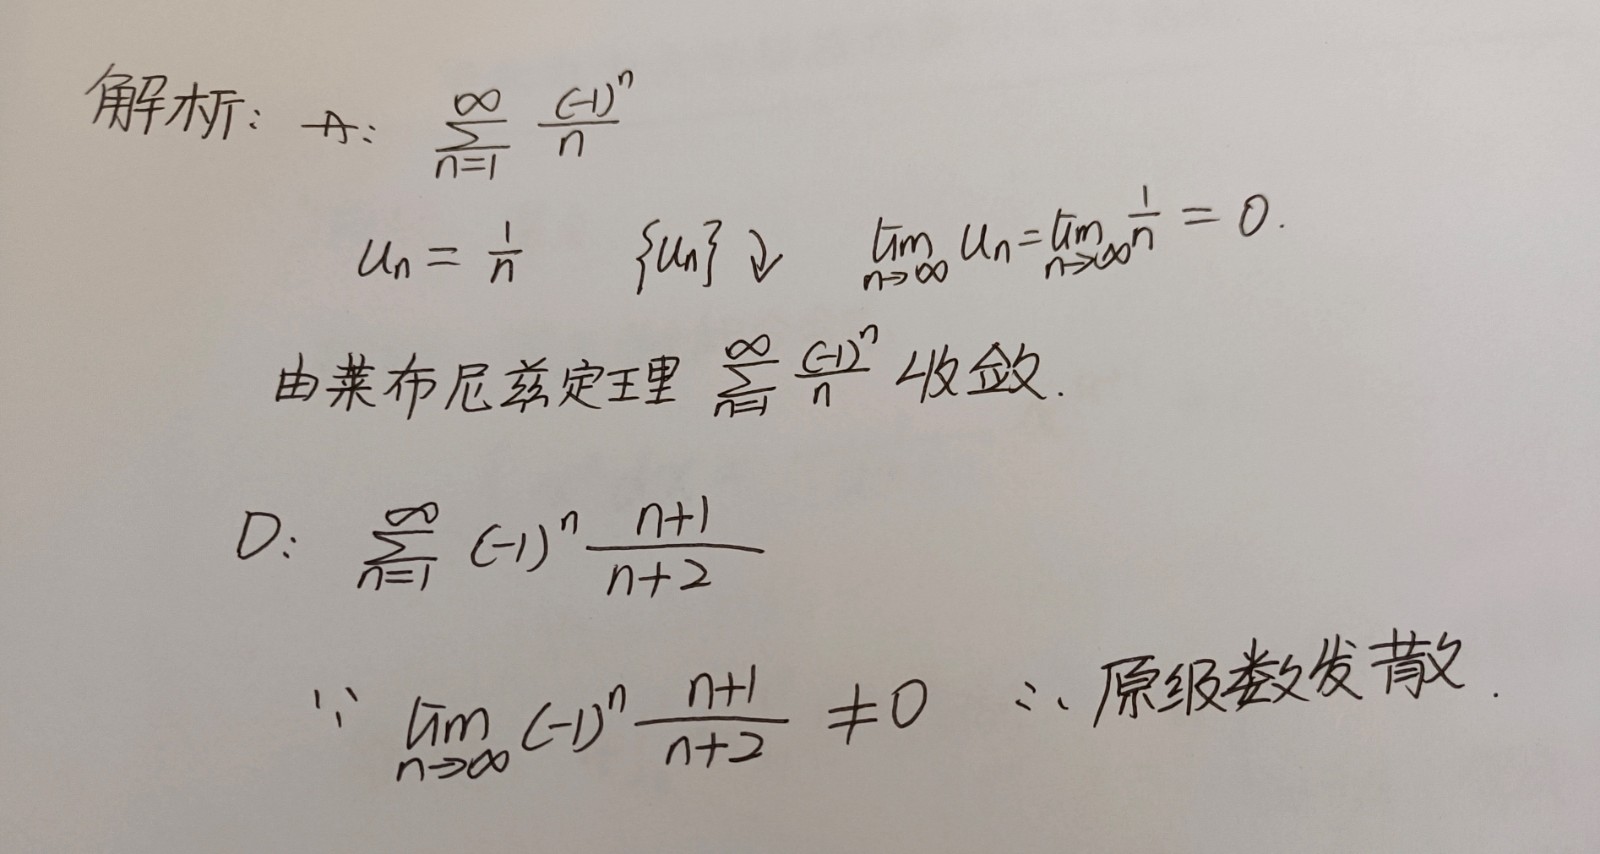 解析: A: \sum_{n=1}^{\infty} \frac{(-1)^n}{n}
u_n = \frac{1}{n} {u_n} ↓ \lim_{n→∞} u_n = \lim_{n→∞} \frac{1}{n} = 0.
由莱布尼兹定理 \sum_{n=1}^{\infty} \frac{(-1)^n}{n} 收敛.
D: \sum_{n=1}^{\infty} (-1)^n \frac{n+1}{n+2}
∵ \lim_{n→∞} (-1)^n \frac{n+1}{n+2} ≠ 0 ∴ 原级数发散.